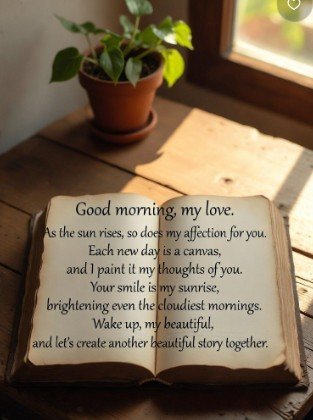 Good morning, my love.
As the sun rises, so does my affection for you.
Each new day is a canvas,
and I paint it my thoughts of you.
Your smile is my sunrise,
brightening even the cloudiest mornings.
Wake up, my beautiful,
and let's create another beautiful story together.